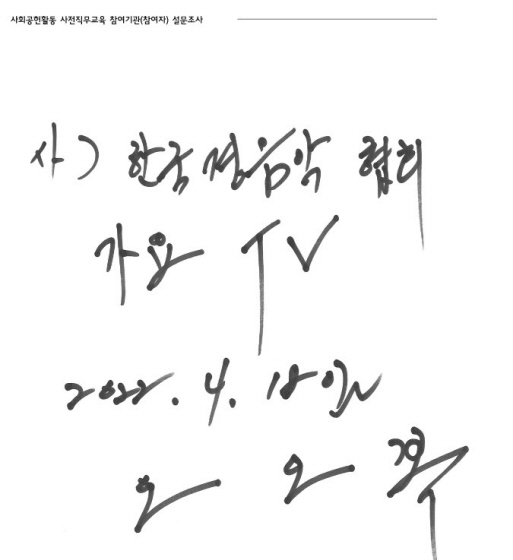 사회공헌활동 사전직무교육 참여기관(참여자) 설문조사
사) 한국경음악 협회
가요 TV
2022. 4. 18일